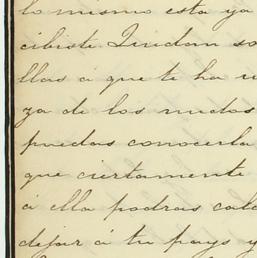 lo mismo esta ya
cibiste. Quedan so
llas á que te ha
ya de los nudos
puedas conocerla
que ciertamente
á ella podras cal
dejar á tu pays y